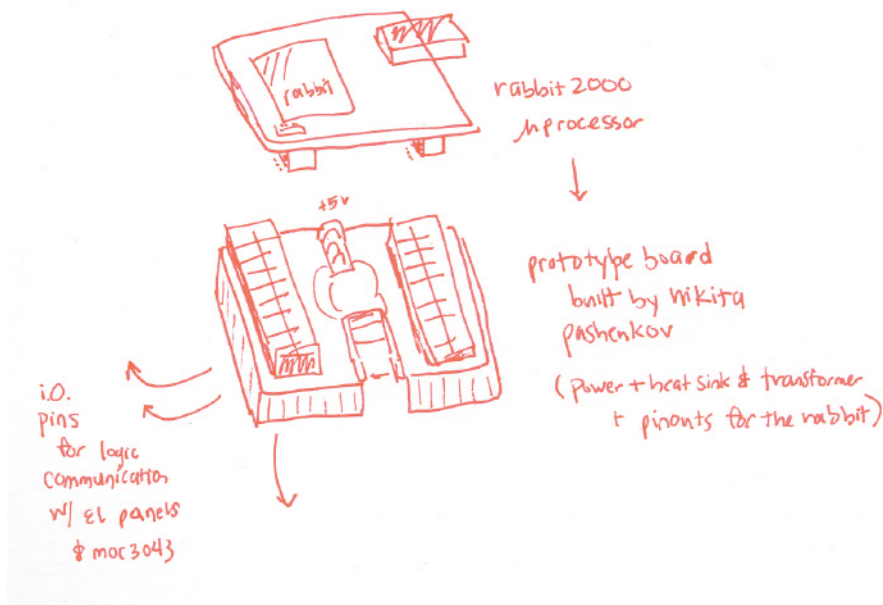 rabbit
rabbit 2000
µprocessor
+5v
prototype board
built by nikita
pashenkov
(power + heat sink & transformer
+ pinouts for the rabbit)
i.o.
pins
for logic
communication
w/ EL panels
& moc3043